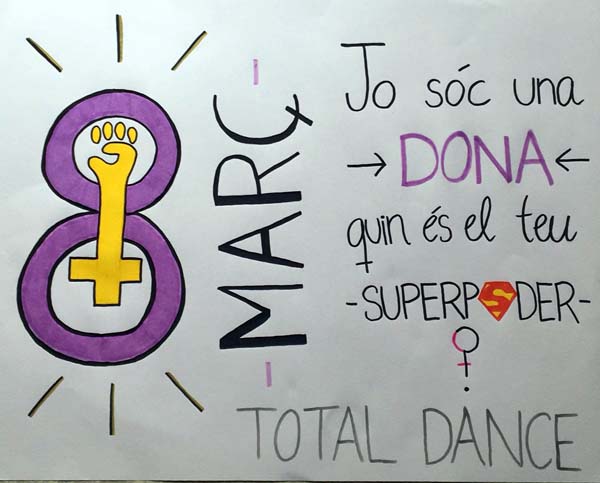 8
-MARÇ-
Jo sóc una
→ DONA ←
quin és el teu
-SUPERPODER-
?
TOTAL DANCE